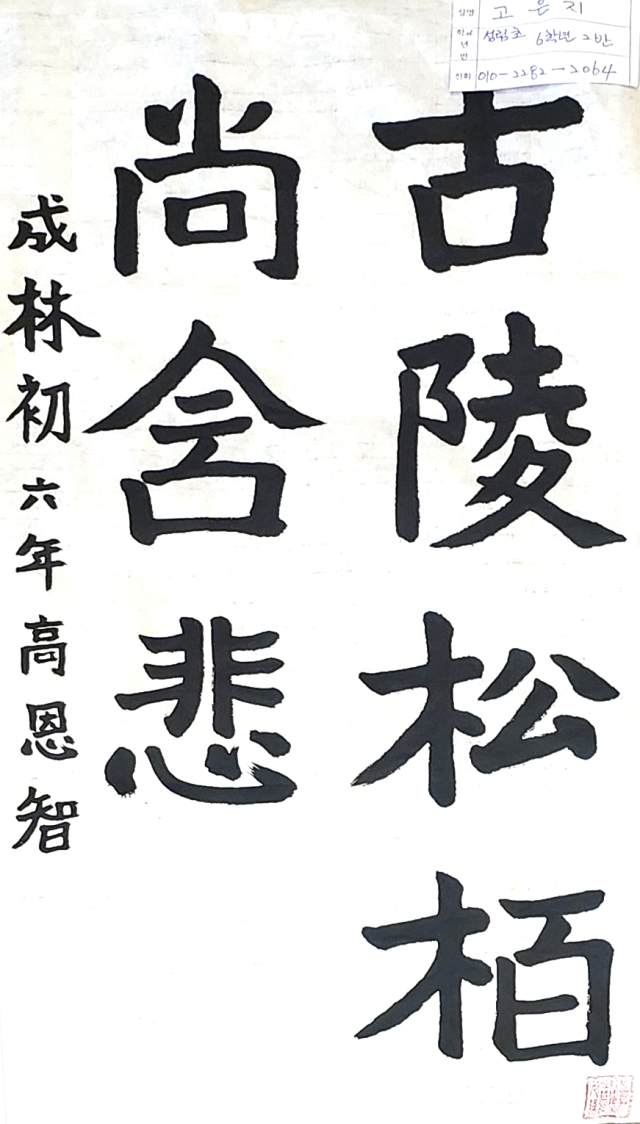 성명 고은지
학교 년 반 성림초 6학년 2반
전화 010-2282-2064
古陵松栢
尚含悲
成林初六年高恩智